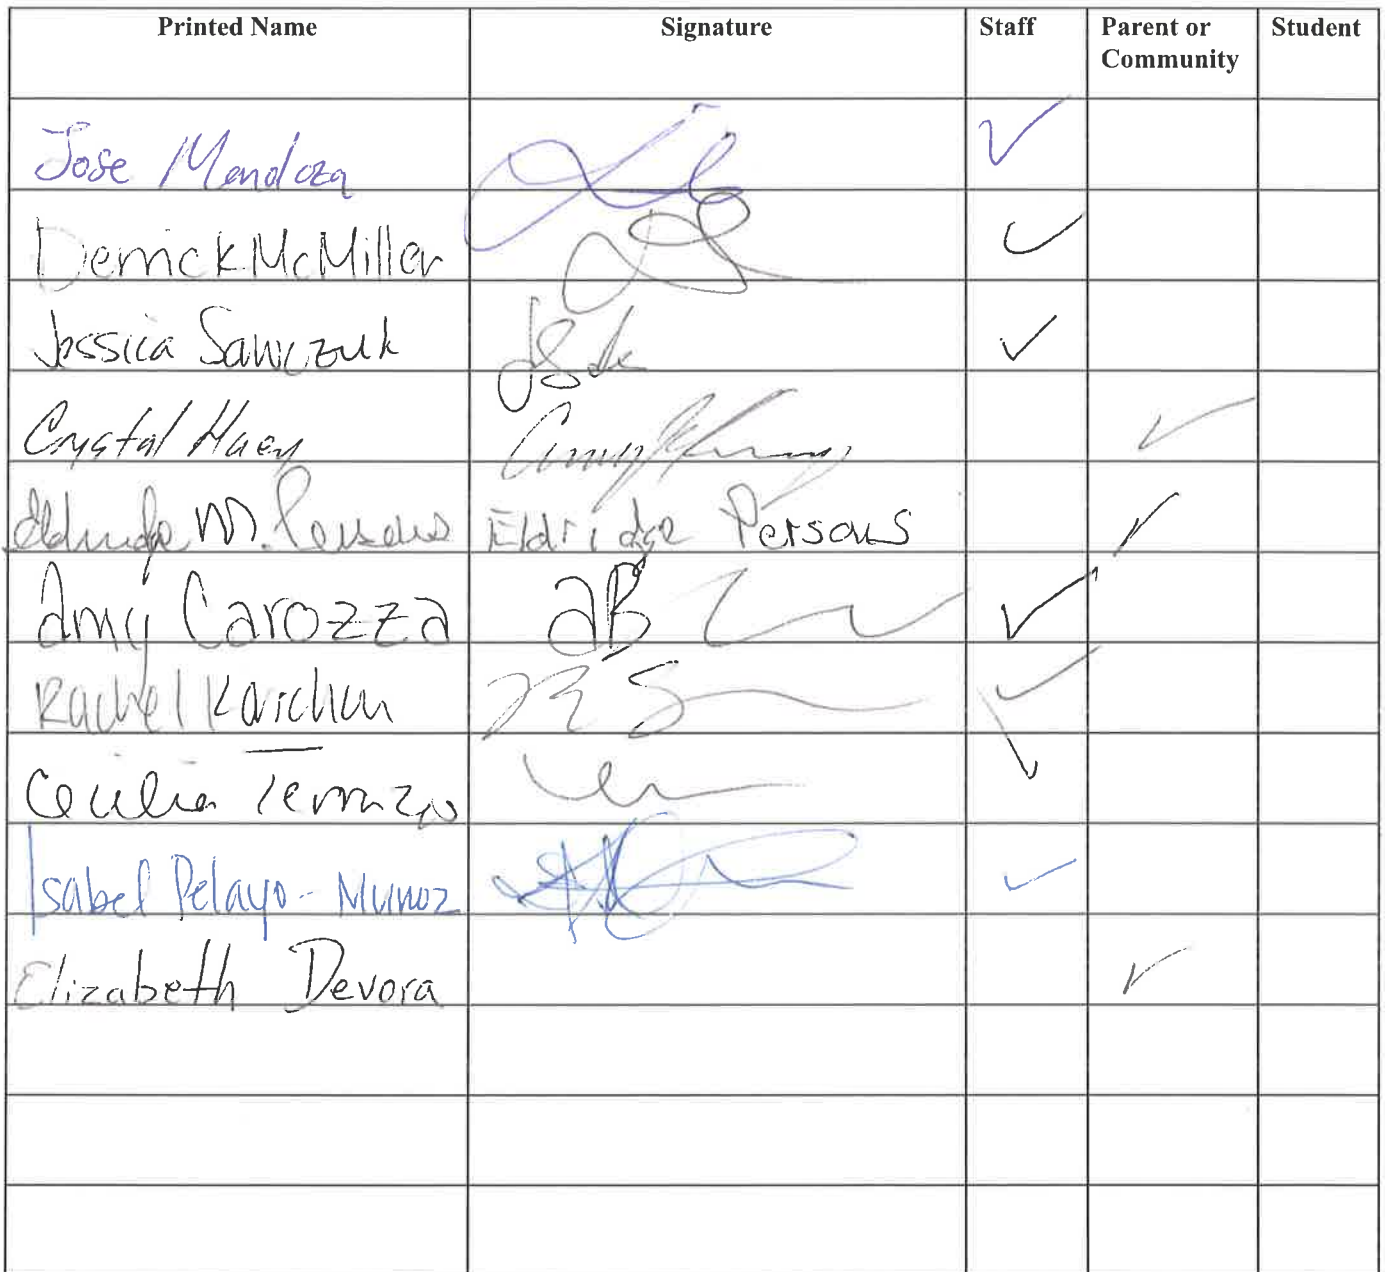 Printed Name Signature Staff Parent or Community Student
Jose Mendoza ✓
Derrick McMiller ✓
Jessica Sawczuk ✓
Crystal Huey ✓
Eldridge M. Persons Eldridge Persons ✓
Amy Carozza aB ✓
Rachel Karchin ✓
Cecilia Terrazo ✓
Isabel Pelayo-Munoz ✓
Elizabeth Devora ✓